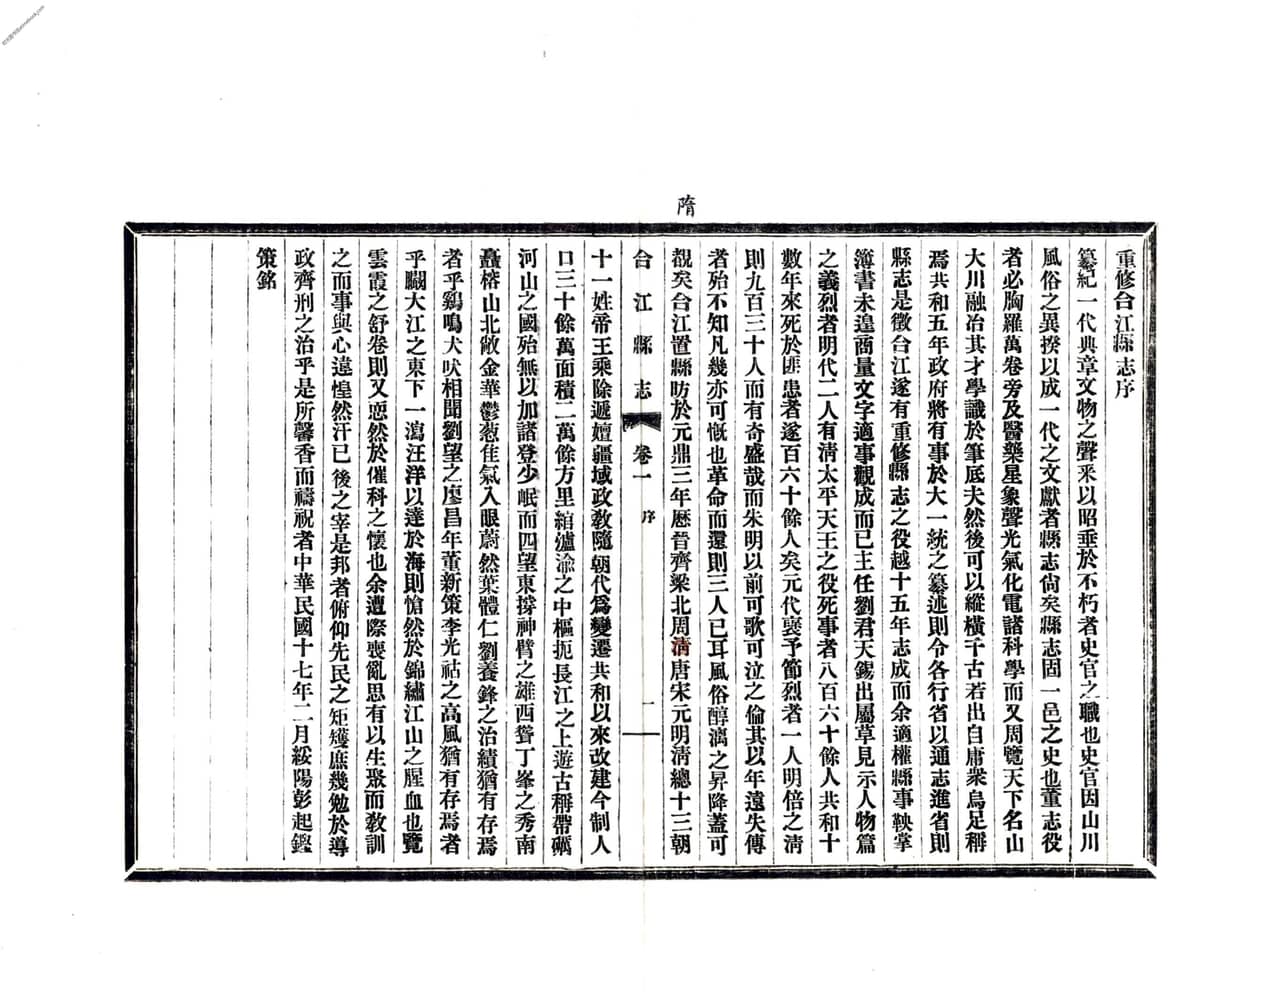 隋
重修合江縣志序
纂紀一代典章文物之聲釆以昭垂於不朽者史官之職也史官因山川
風俗之異揆以成一代之文獻者縣志尙矣縣志固一邑之史也董志役
者必胸羅萬卷旁及醫藥星象聲光氣化電諸科學而又周覽天下名山
大川融冶其才學識於筆底夫然後可以縱橫千古若出自庸衆烏足稱
焉共和五年政府將有事於大一統之纂述則令各行省以通志進省則
縣志是徵合江遂有重修縣志之役越十五年志成而余適權縣事鞅掌
簿書未遑商量文字適事觀成而已主任劉君天錫出屬草見示人物篇
之義烈者明代二人有淸太平天王之役死事者八百六十餘人共和十
數年來死於匪患者遂百六十餘人矣元代褒予節烈者一人明倍之淸
則九百三十人而有奇盛哉而朱明以前可歌可泣之倫其以年遠失傳
者殆不知凡幾亦可慨也革命而還則三人已耳風俗醇漓之昇降蓋可
覩矣合江置縣昉於元鼎三年歷晉齊梁北周淸唐宋元明淸總十三朝
合江縣志 卷一 序 一
十一姓帝王乘除遞嬗疆域政敎隨朝代爲變遷共和以來改建今制人
口三十餘萬面積二萬餘方里綰瀘渝之中樞扼長江之上遊古稱帶礪
河山之國殆無以加諸登少岷而四望東撐神臂之雄西聳丁峯之秀南
矗榕山北敞金華鬱葱佳氣入眼蔚然葉體仁劉養鋒之治績猶有存焉
者乎鷄鳴犬吠相聞劉望之廖昌年董新策李光祜之高風猶有存焉者
乎瞰大江之東下一瀉汪洋以達於海則愴然於錦繡江山之腥血也覽
雲霞之舒卷則又恧然於催科之懷也余遭際喪亂思有以生聚而敎訓
之而事與心違惶然汗已後之宰是邦者俯仰先民之矩矱庶幾勉於導
政齊刑之治乎是所馨香而禱祝者中華民國十七年二月綏陽彭起鏗
策銘